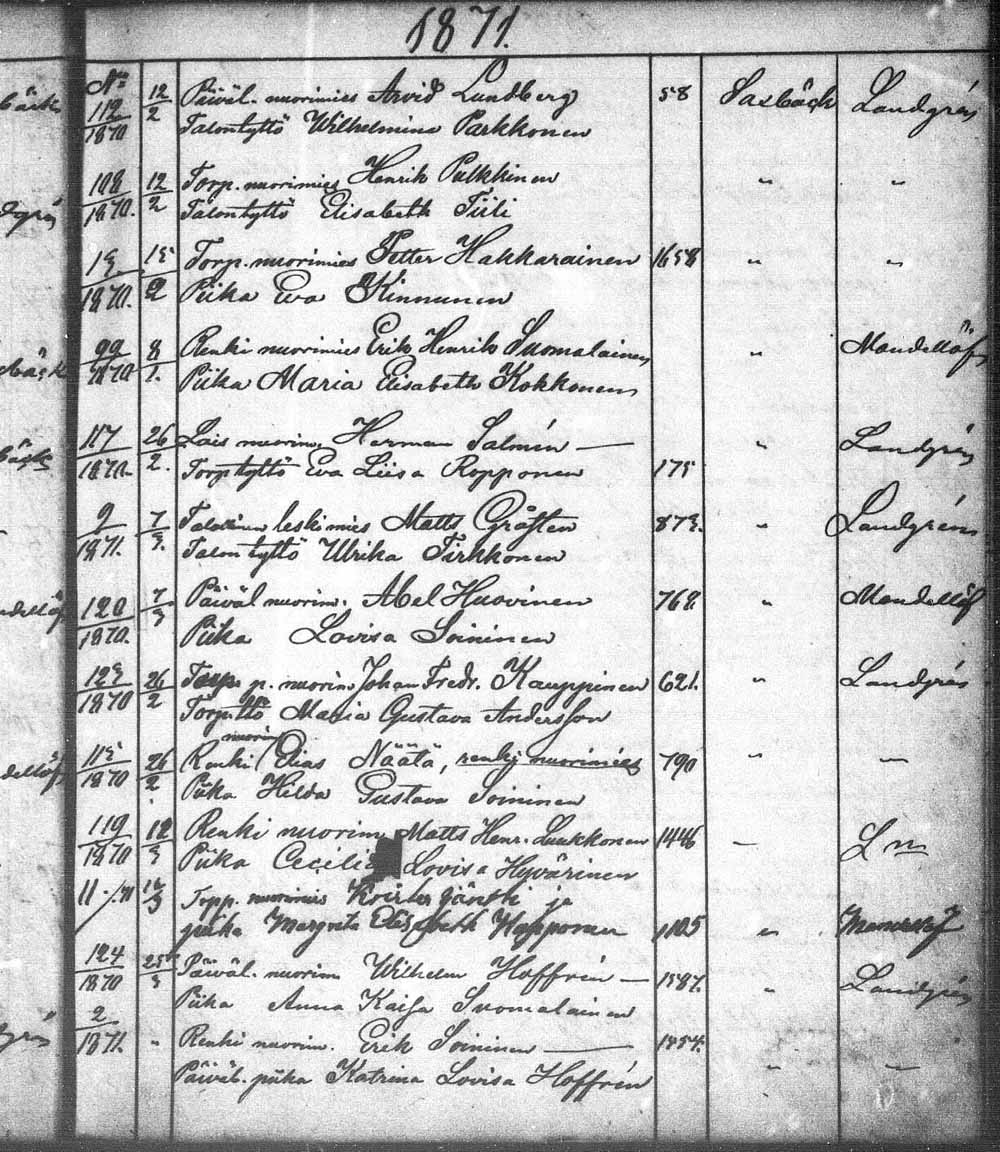 1871.
No 12 Päiväl. nuorimies Arvid Lundberg 58 Saxbäck Landgrén
112/1870 2 Talontyttö Wilhelmina Parkkonen
108 12 Torp. nuorimies Henrik Pulkkinen " "
1870. 2 Talontyttö Elisabeth Tiili
15 Torp. nuorimies Petter Hakkarainen 1658 " "
1870. 2 Piika Eva Kinnunen
99 8 Renki nuorimies Erik Henrik Suomalainen " Mandellöf
1870 1. Piika Maria Elisabeth Kokkonen
117 26 Lois nuorim. Herman Salmén — " Landgrén
1870. 2. Torptyttö Eva Liisa Ropponen 175
9 7 leskimies Matts Gråsten 873. " Landgrén
1871. 3. Talontyttö Ulrika Tirkkonen
120 7 Päiväl nuorim. Abel Huovinen 768 " Mandellöf
1870. 3 Piika Lovisa Soininen
123 26 Torp. p. nuorim Johan Fredr. Kauppinen 621. " Landgrén
1870 2 Torp.ttö Maria Gustava Andersson
nuorim
115 26 Renki Elias Näätä, renki nuorimies 790 " "
1870 2 Piika Hilda Gustava Soininen
119 12 Renki nuorim Matts Henr. Luukkonen 1446 — L n
1870 3 Piika Cecilia Lovisa Hyvärinen
11/71 12/3 Topp. nuorimies Jäntti ja
piika Margreta Elizabeth Happonen 1105 "
124 25 Päiväl. nuorim Wilhelm Hoffrén — 1587. " Landgrén
1870 3 Piika Anna Kaisa Suomalainen
2
1871. " Renki nuorim. Erik Soininen — 1454.
Päiväl. piika Katrina Lovisa Hoffrén " "